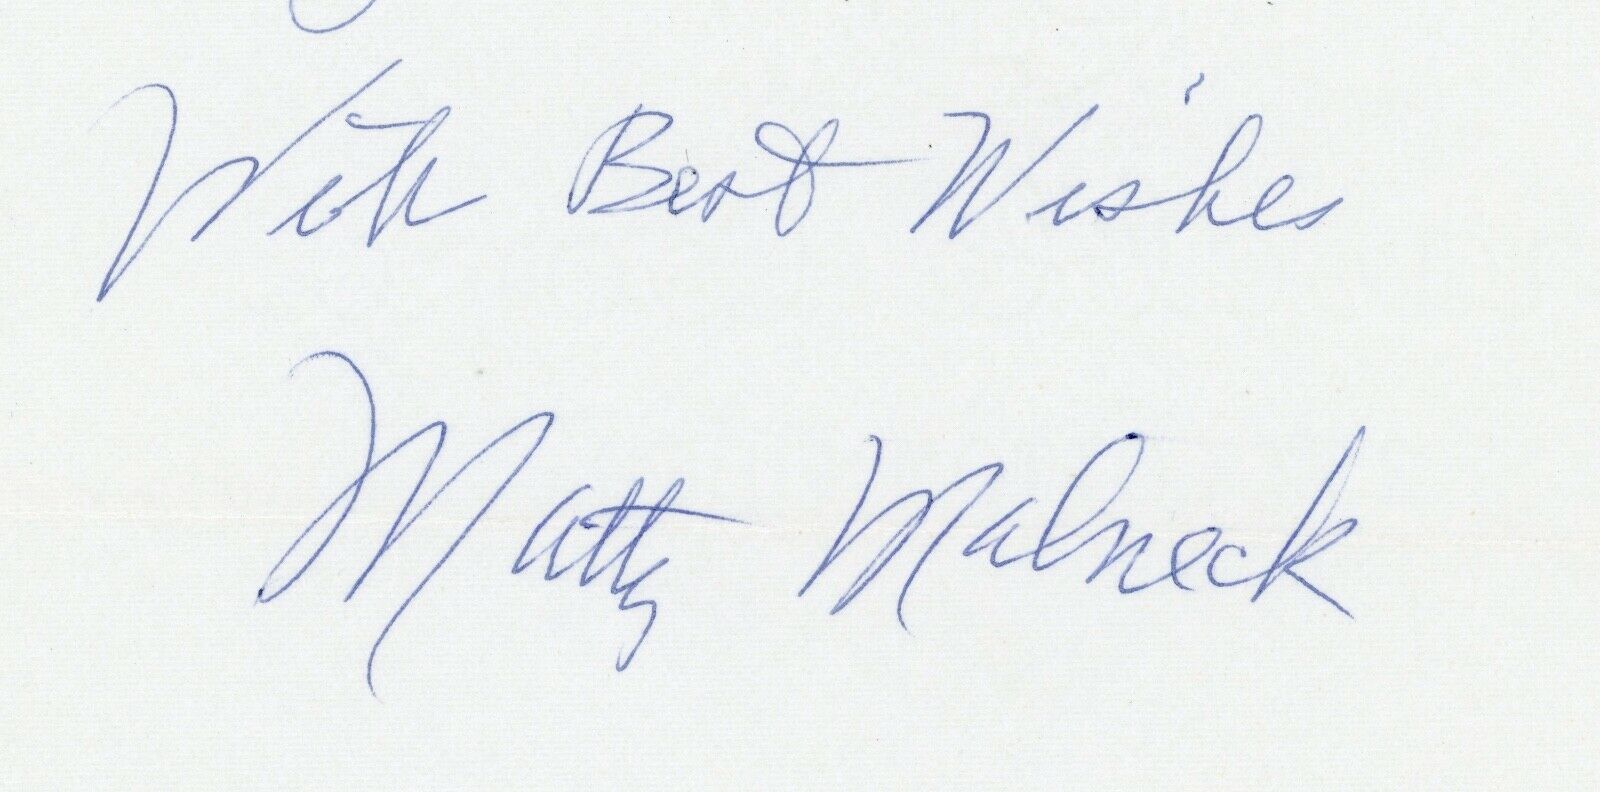 With Best Wishes
Matty Malneck